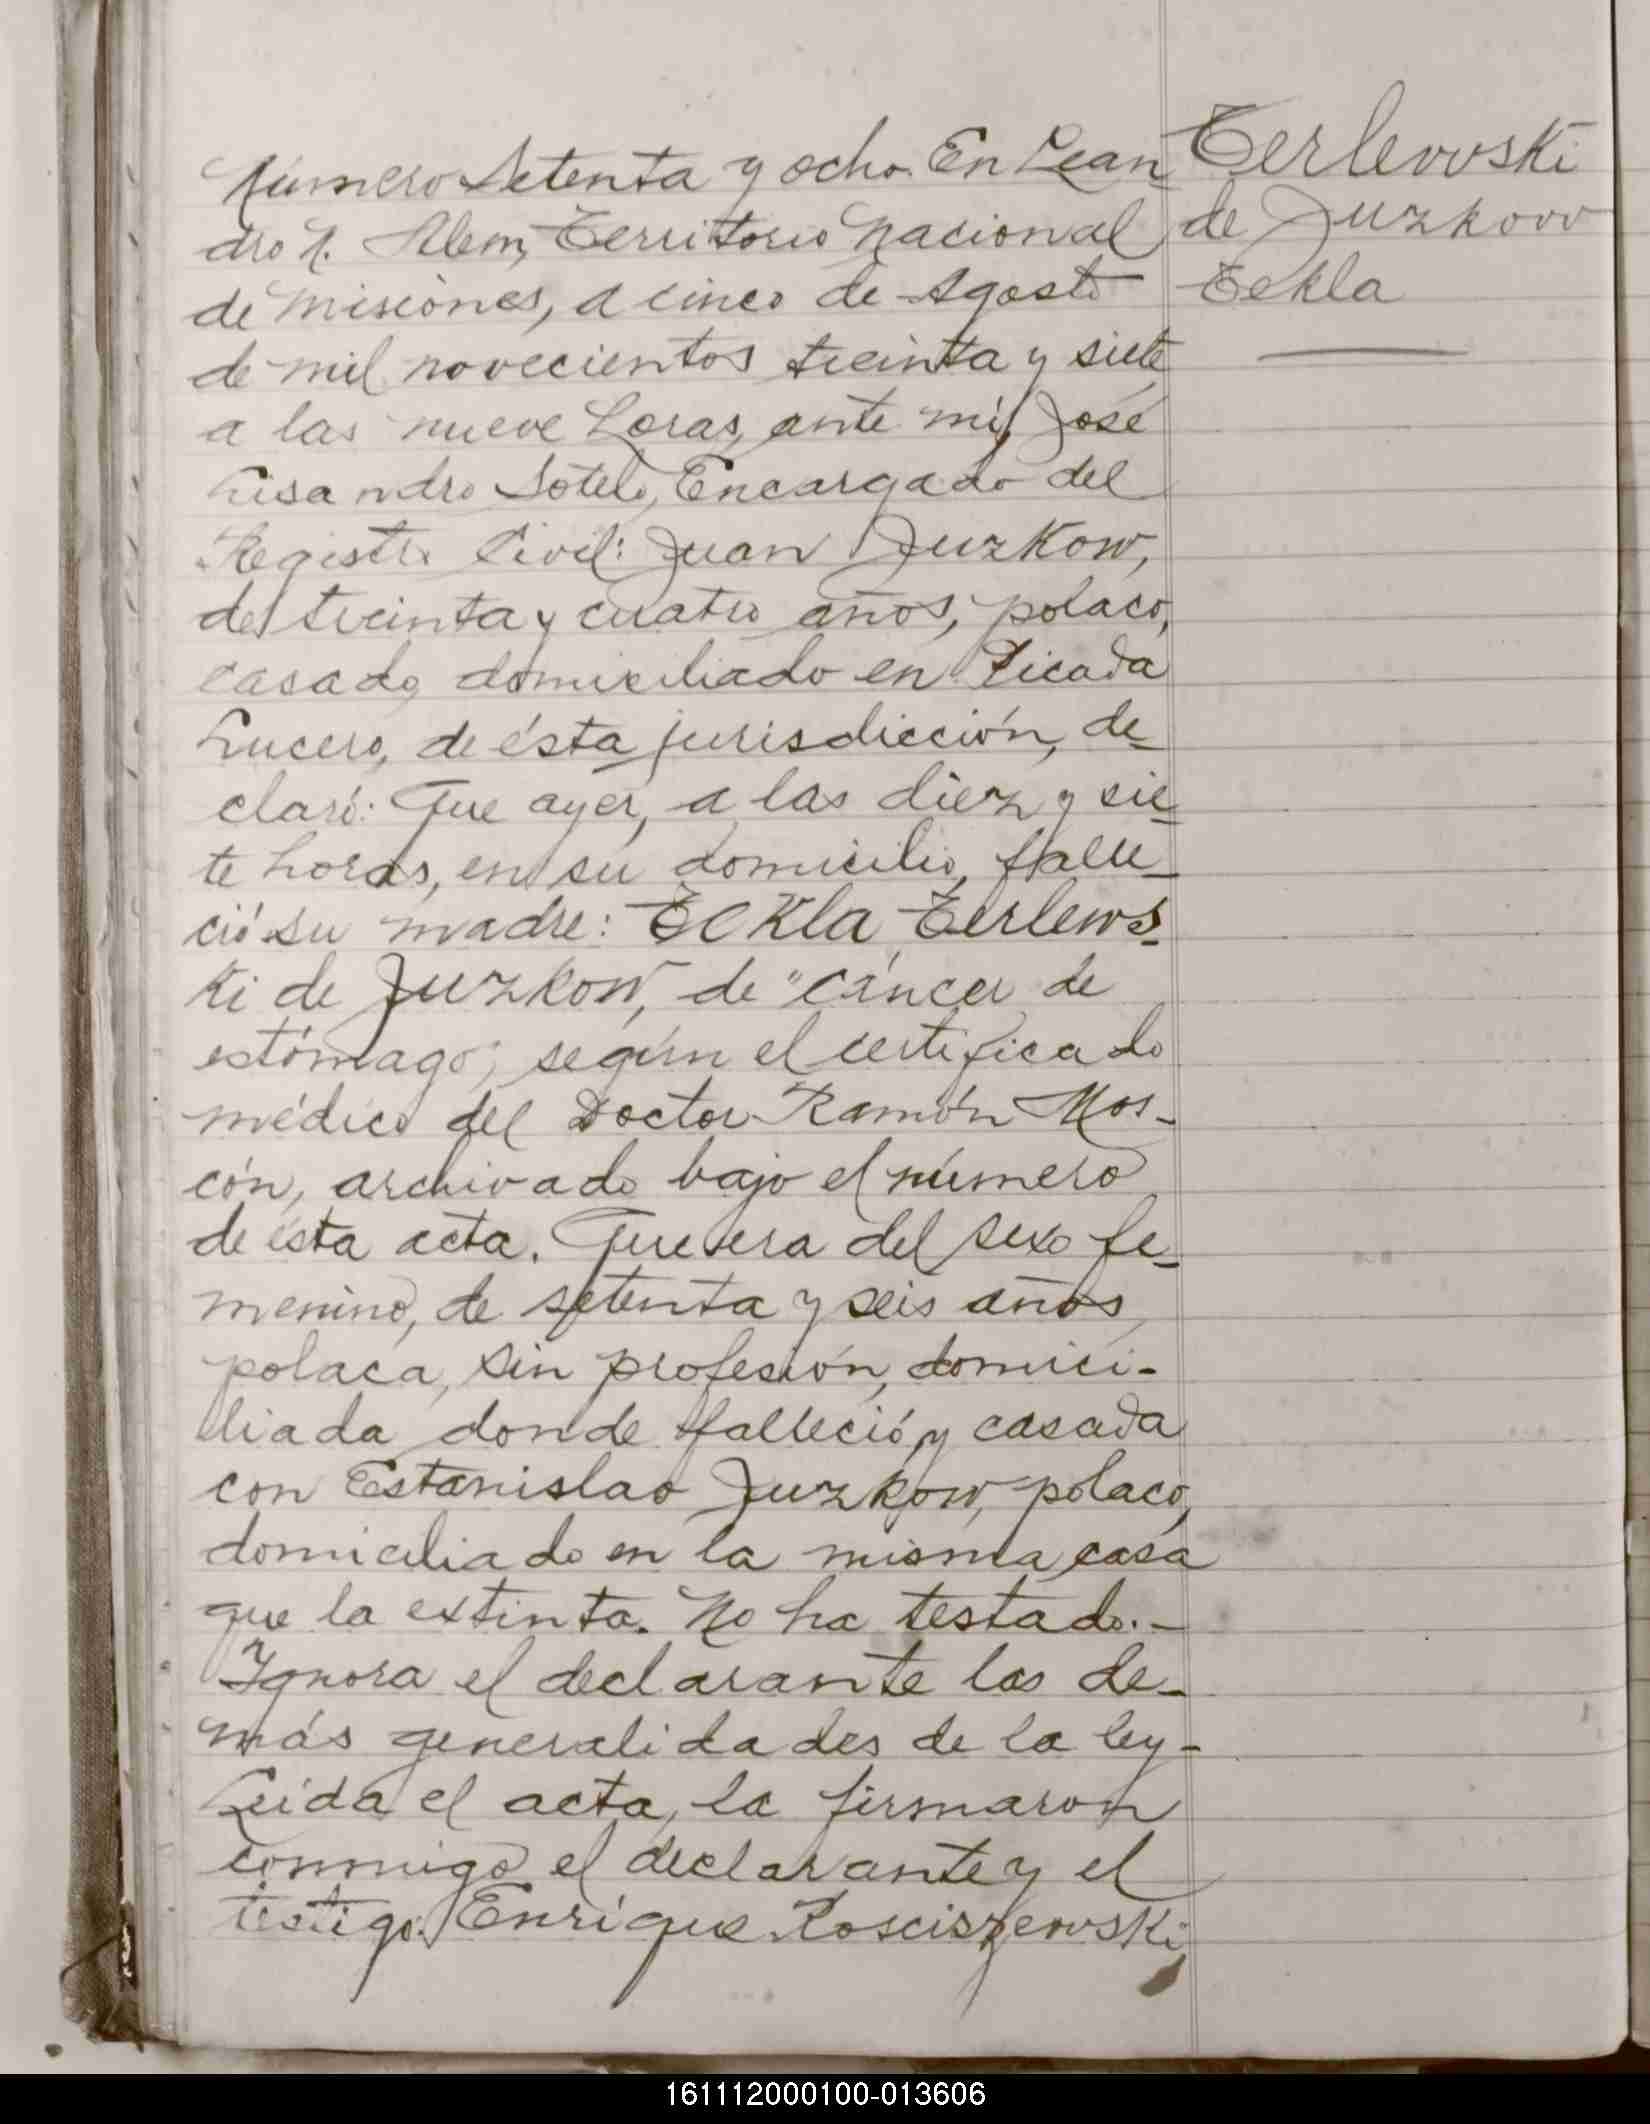 Número Setenta y ocho. En Lean
dro N. Alem, Territorio Nacional
de Misiones, a cinco de Agosto
de mil novecientos treinta y siete
a las nueve horas, ante mí, José
Lisandro Sotelo, Encargado del
Registro Civil: Juan Juzkow,
de treinta y cuatro años, polaco,
casado, domiciliado en Picada
Lucero, de ésta jurisdicción, de-
claró: Que ayer, a las diez y sie-
te horas, en su domicilio, falle-
ció su madre: Tekla Terlews-
ki de Juzkow, de "cáncer de
estómago", según el certificado
médico del Doctor Ramón Mos-
cón, archivado bajo el número
de ésta acta. Que era del sexo fe-
menino, de setenta y seis años,
polaca, sin profesión, domici-
liada donde falleció y casada
con Estanislao Juzkow, polaco,
domiciliado en la misma casa
que la extinta. No ha testado.-
Ignora el declarante las de-
más generalidades de la ley-
Leída el acta, la firmaron
conmigo el declarante y el
testigo: Enrique Rosciszewski,
Terlewski
de Juzkow
Tekla
161112000100-013606